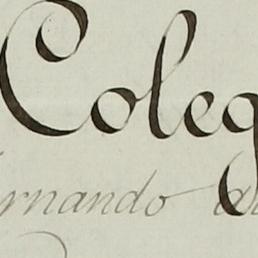 Coleg
rnando